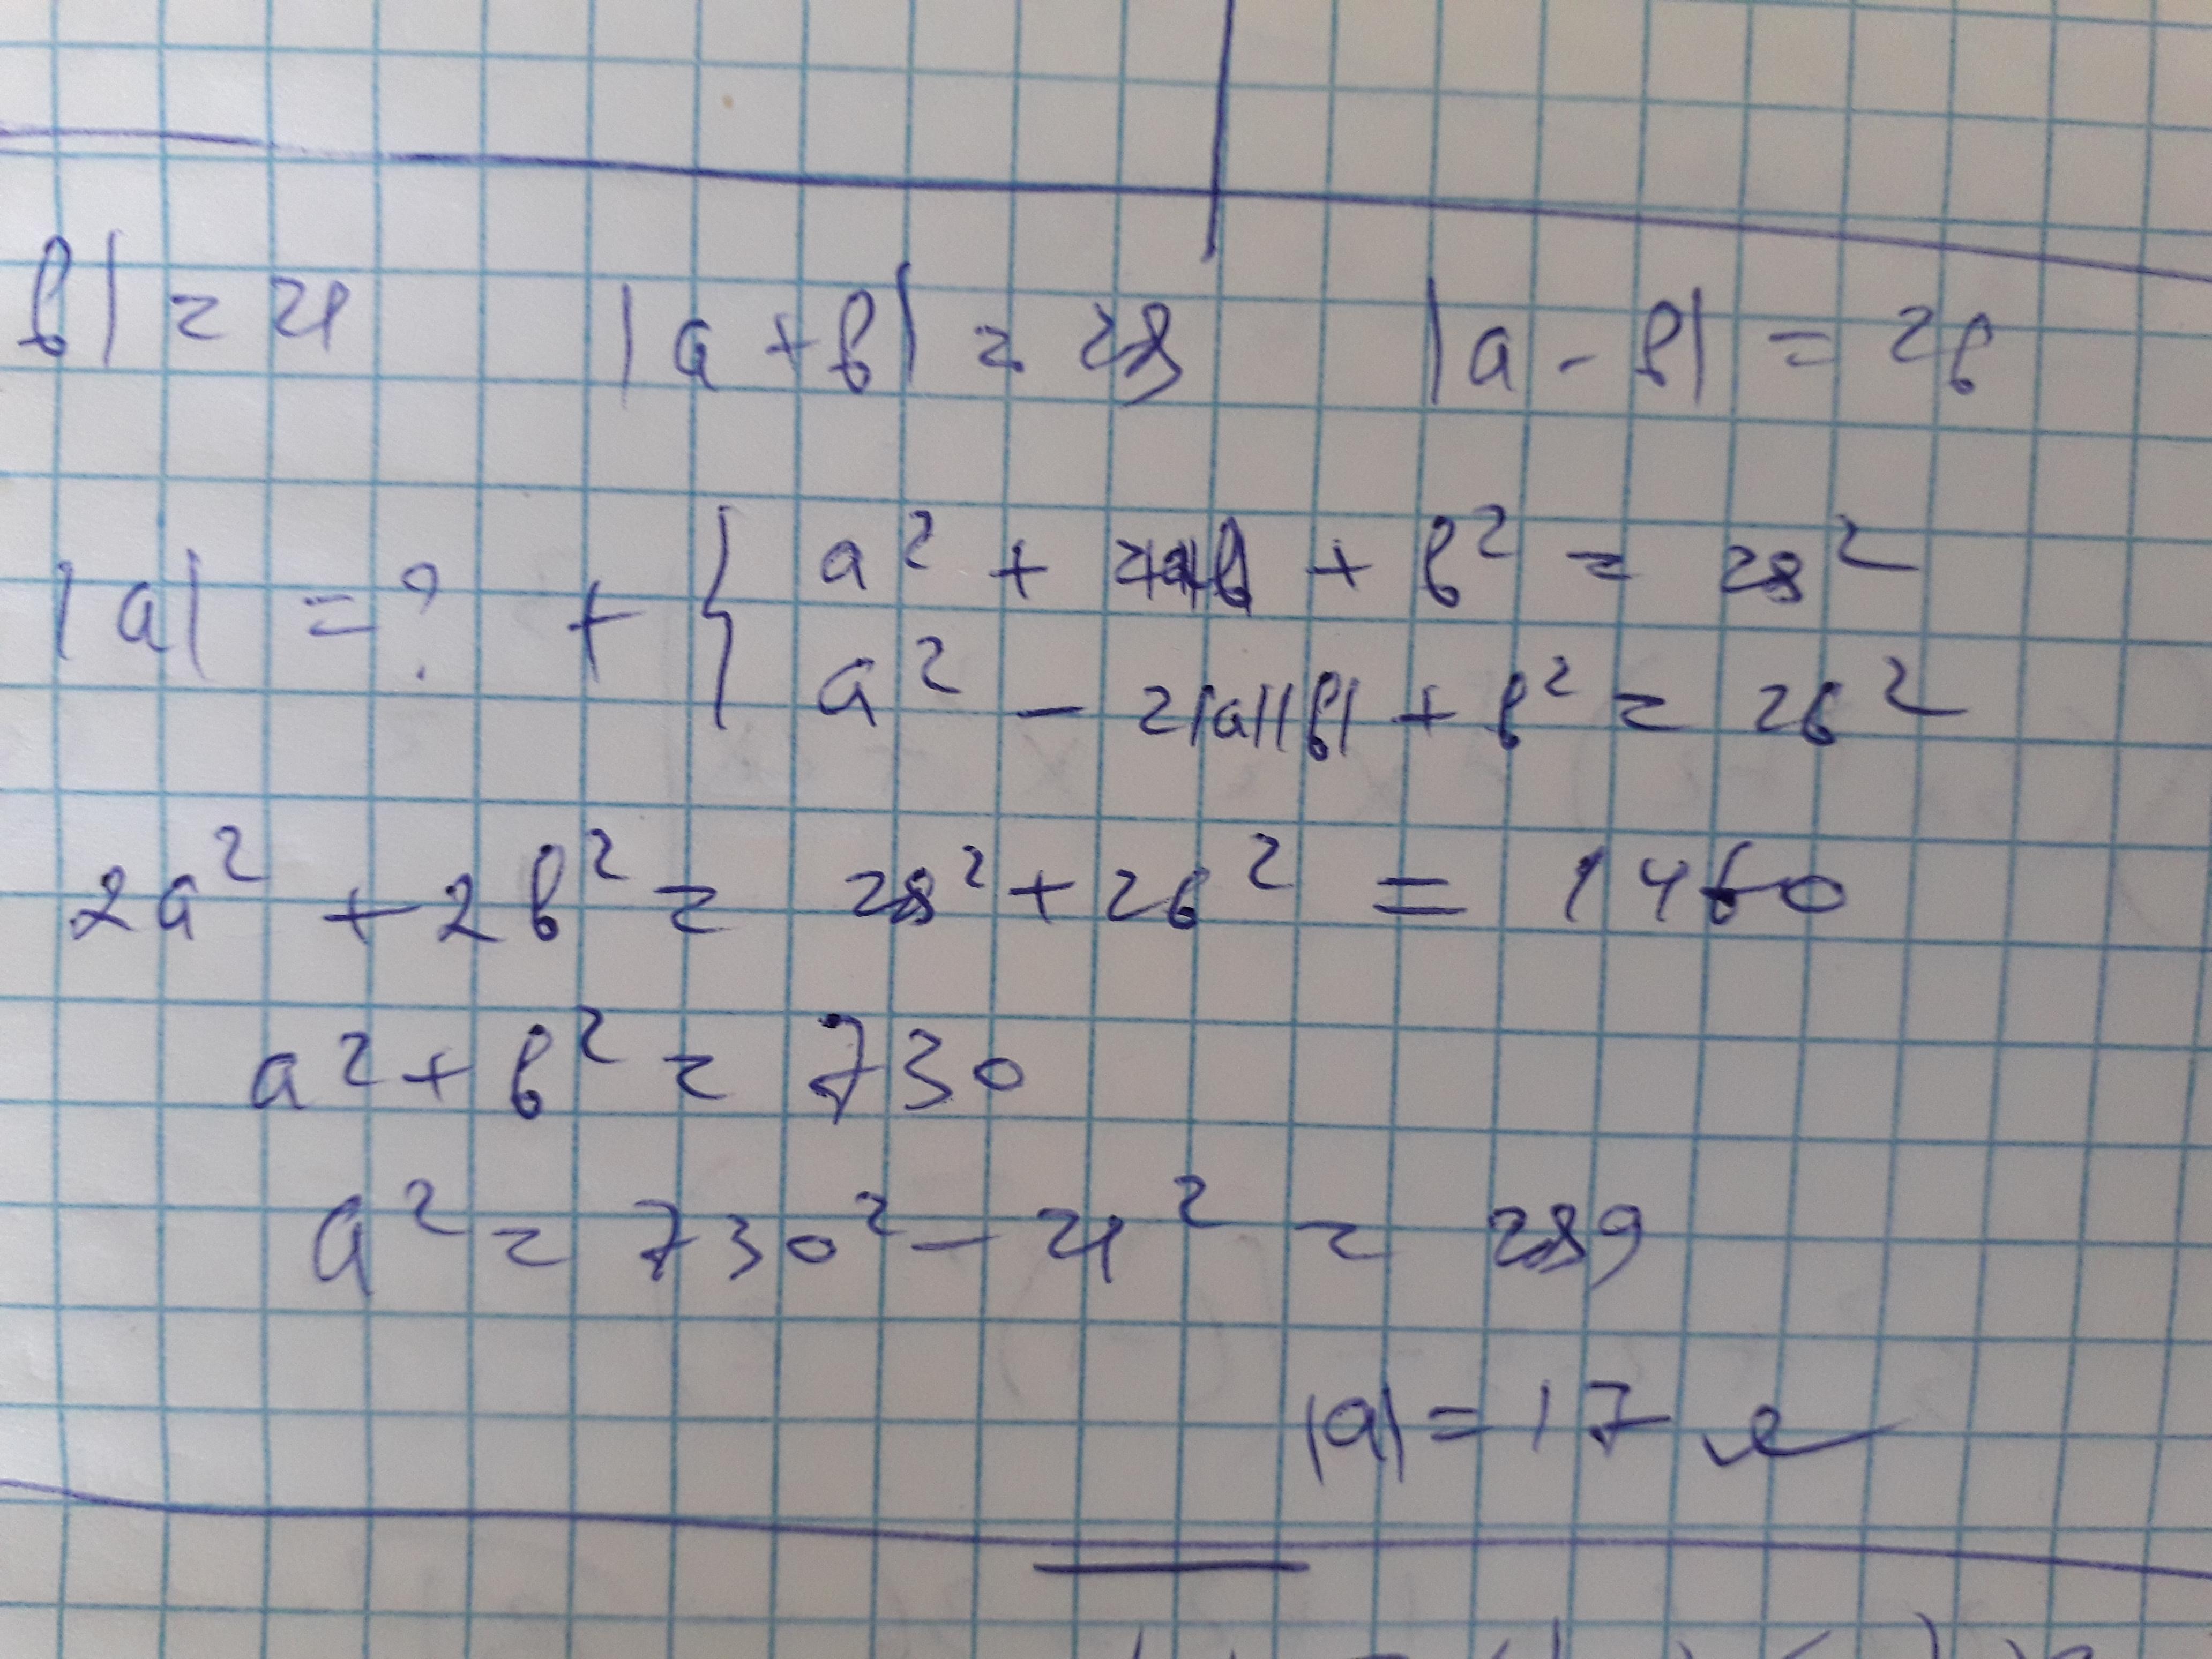 в| = 21 |a + в| = 28 |a - в| = 26
|a| = ? + { a² + 2|a||в| + в² = 28²
a² - 2|a||в| + в² = 26²
2a² + 2в² = 28² + 26² = 1460
a² + в² = 730
a² = 730² - 21² = 289
|a| = 17